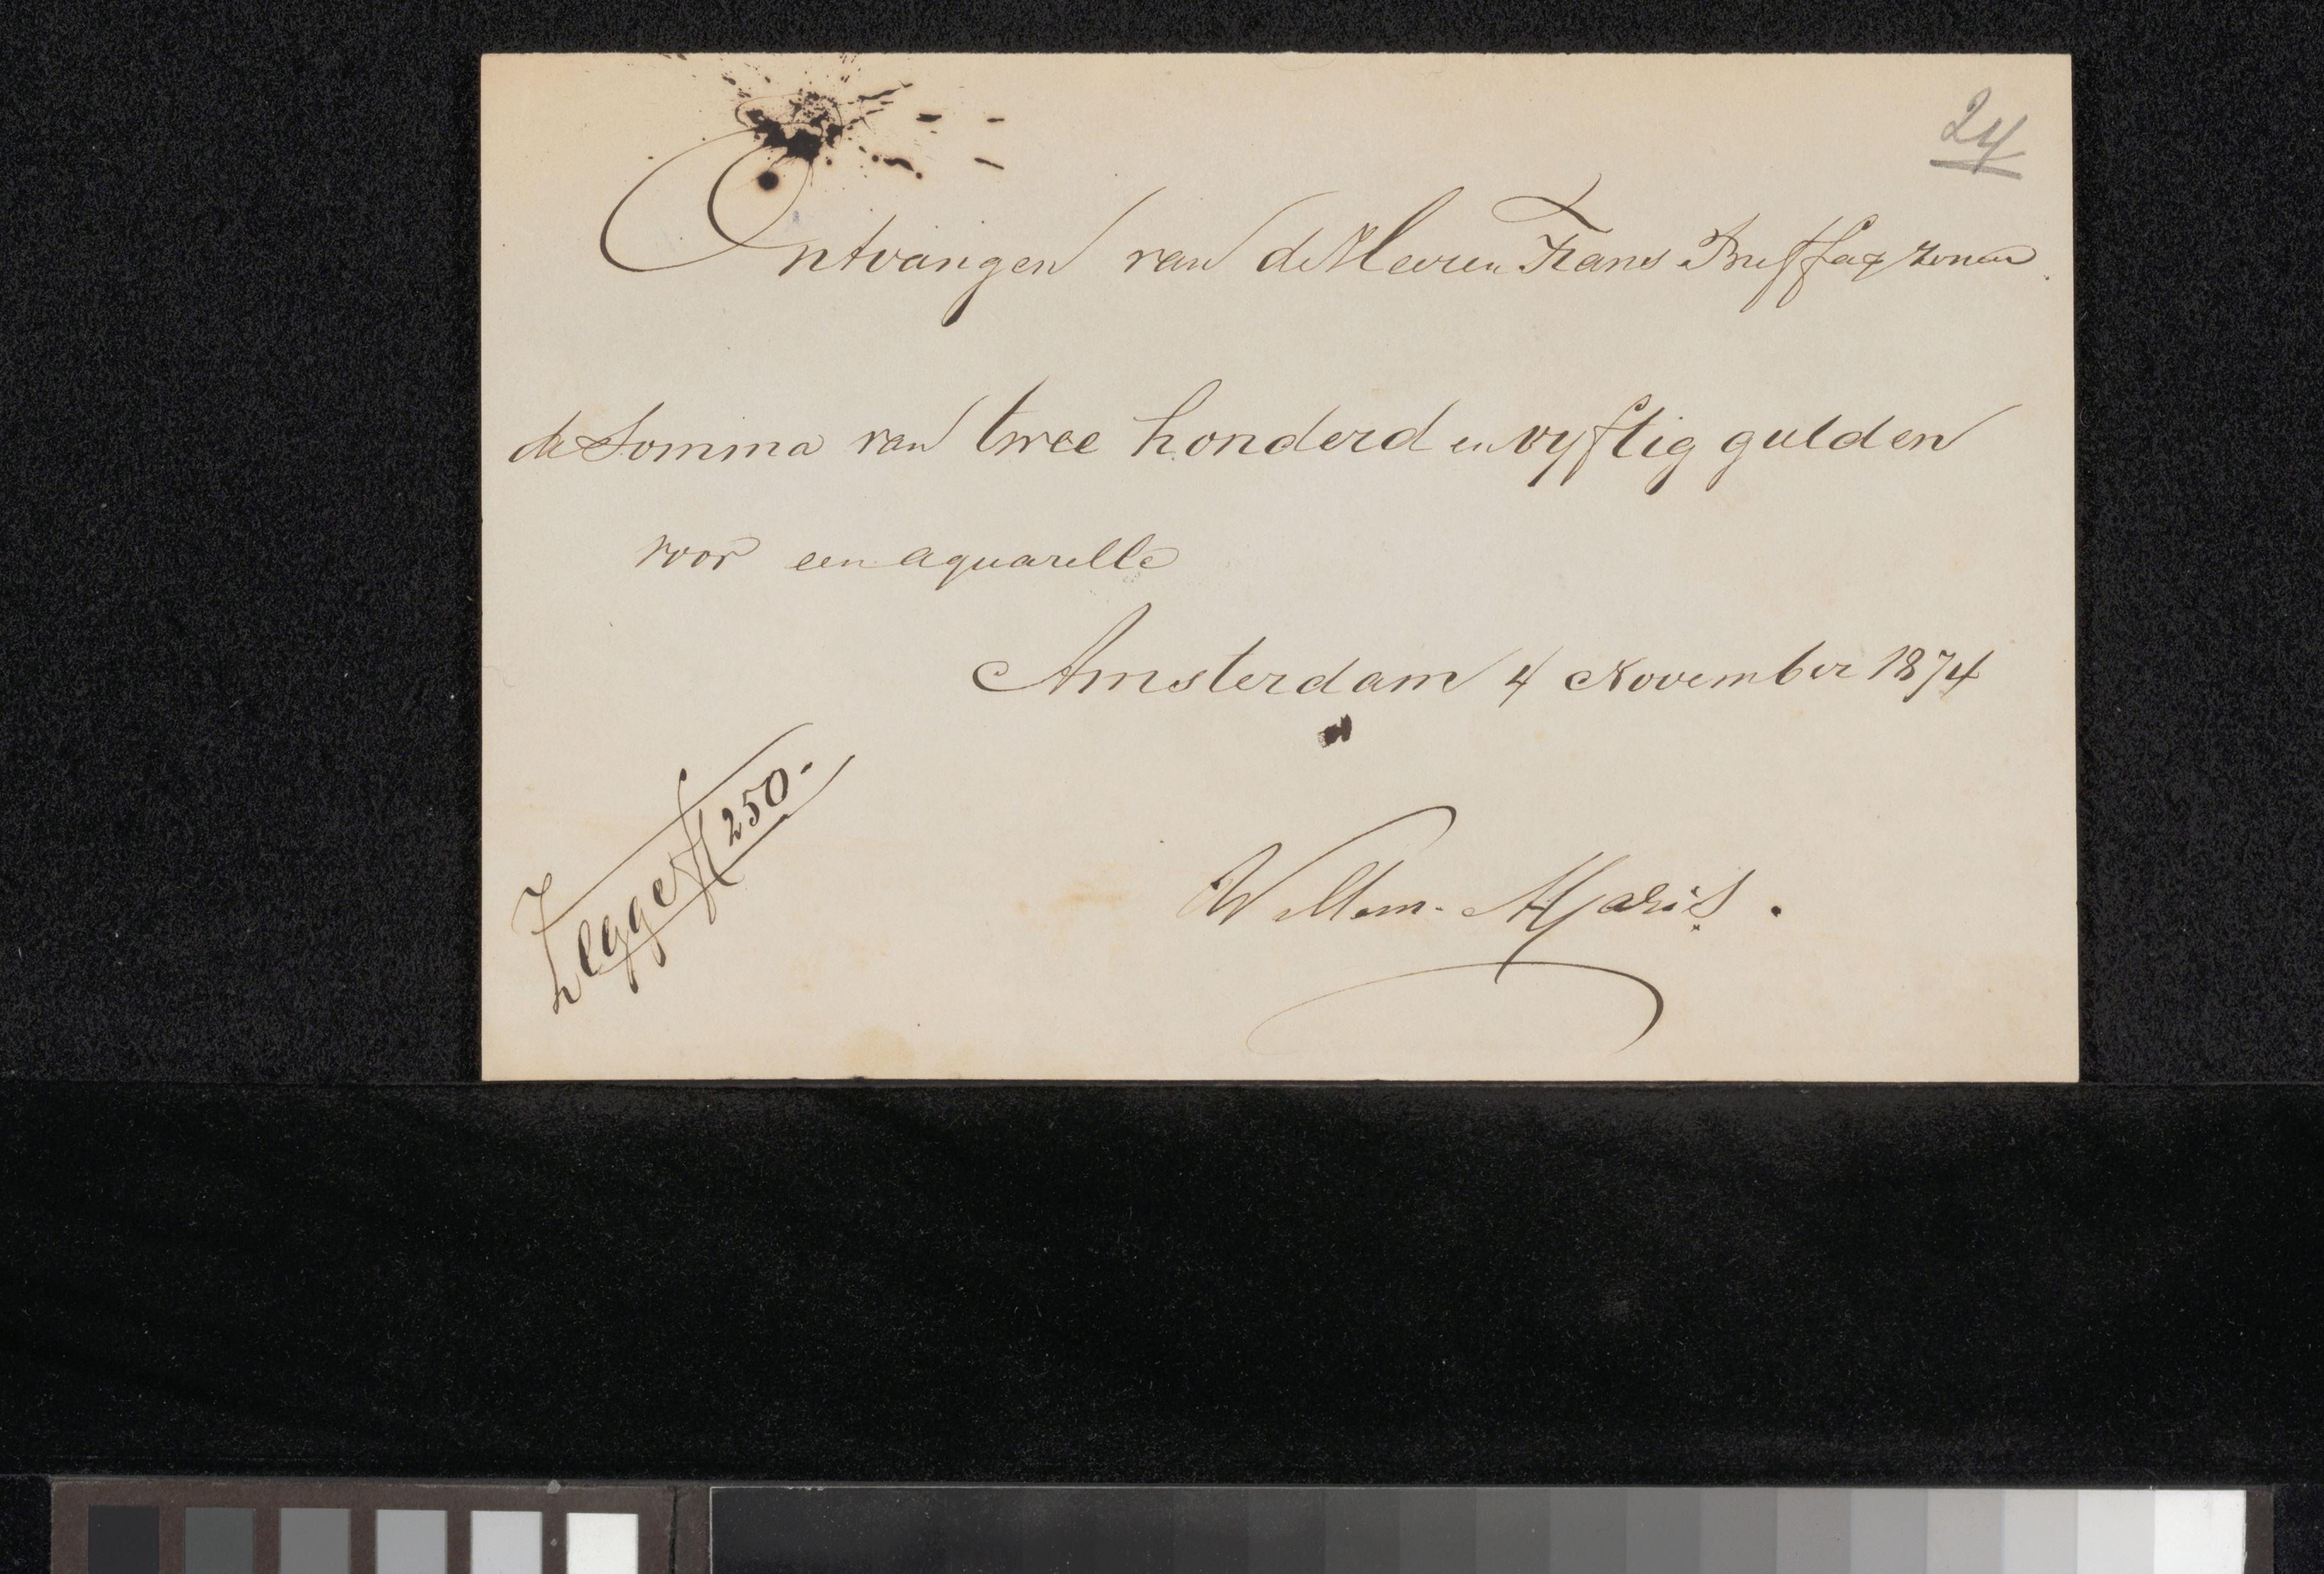 24
Ontvangen van de Heeren Frans Buffa & zonen
de Somma van twee honderd en vyftig gulden
voor een aquarelle
Amsterdam 4 November 1874
Zegge fl 250.-
Willem Maris.